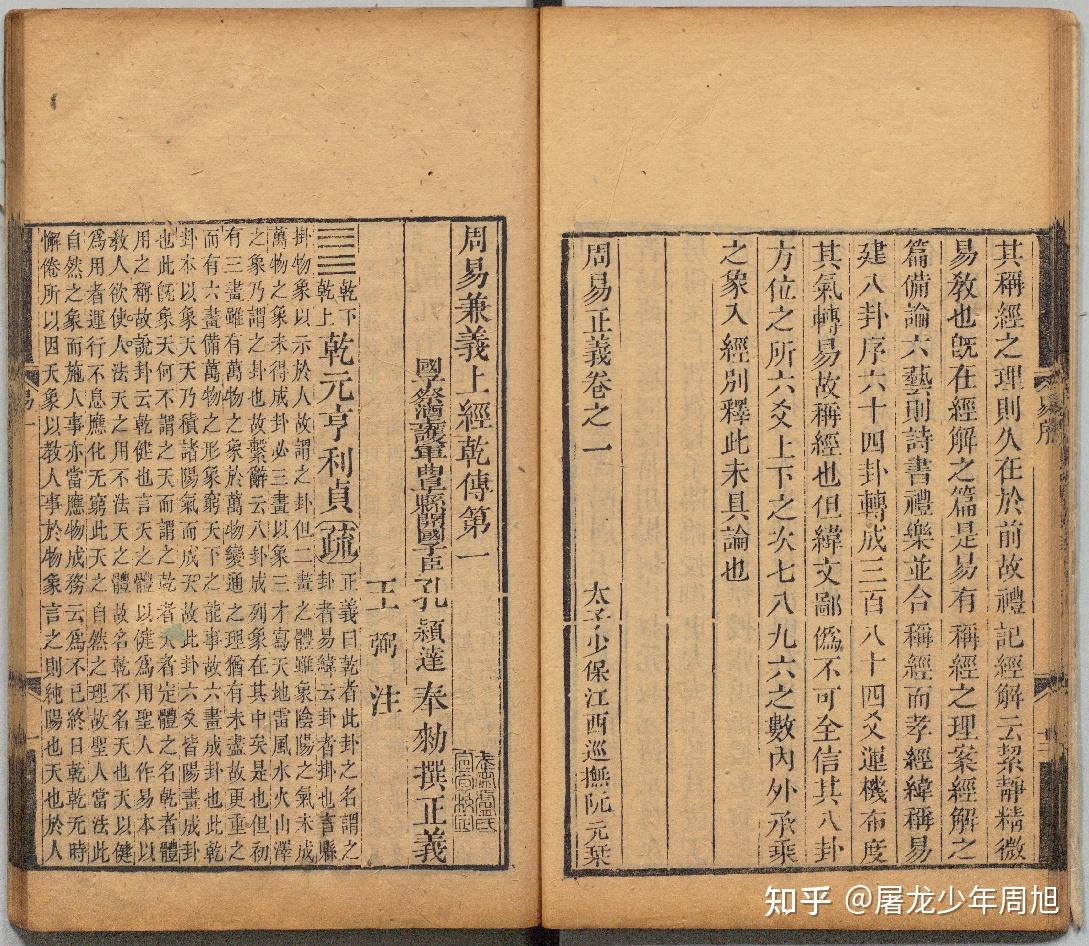 其稱經之理則久在於前故禮記經解云絜靜精微
易敎也旣在經解之篇是易有稱經之理案經解之
篇備論六藝則詩書禮樂並合稱經而孝經緯稱易
建八卦序六十四卦轉成三百八十四爻運機布度
其氣轉易故稱經也但緯文鄙僞不可全信其八卦
方位之所六爻上下之次七八九六之數內外承乘
之象入經別釋此未具論也
周易正義卷之一
太子少保江西巡撫阮元栞
易序
周易兼義上經乾傳第一
國子祭酒上護軍曲阜縣開國子臣孔穎達奉勑撰正義
王弼注
乾下
乾上
乾元亨利貞
疏
正義曰乾者此卦之名謂之
卦者易緯云卦者掛也言縣
掛物象以示於人故謂之卦但二畫之體雖象陰陽之氣未成
萬物之象未得成卦必三畫以象三才寫天地雷風水火山澤
之象乃謂之卦也故繫辭云八卦成列象在其中矣是也但初
有三畫雖有萬物之象於萬物變通之理猶有未盡故更重之
而有六畫備萬物之形象窮天下之能事故六畫成卦也此乾
卦本以象天天乃積諸陽氣而成天故此卦六爻皆陽畫成卦
也此旣象天何不謂之天而謂之乾者天者定體之名乾者體
用之稱故說卦云乾健也言天之體以健爲用聖人作易本以
敎人欲使人法天之用不法天之體故名乾不名天也天以健
爲用者運行不息應化无窮此天之自然之理故聖人當法此
自然之象而施人事亦當應物成務云爲不已終日乾乾无時
懈倦所以因天象以敎人事於物象言之則純陽也天也於人
易一
知乎 @屠龙少年周旭